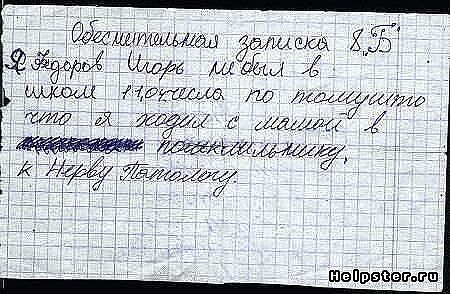 Обеснительная записка 8 „Б"
Я Федоров Игорь не был в
школ 11,04 числа по томушто
что я ходил с мамой в
к Нерву Патологу.
Helpster.ru